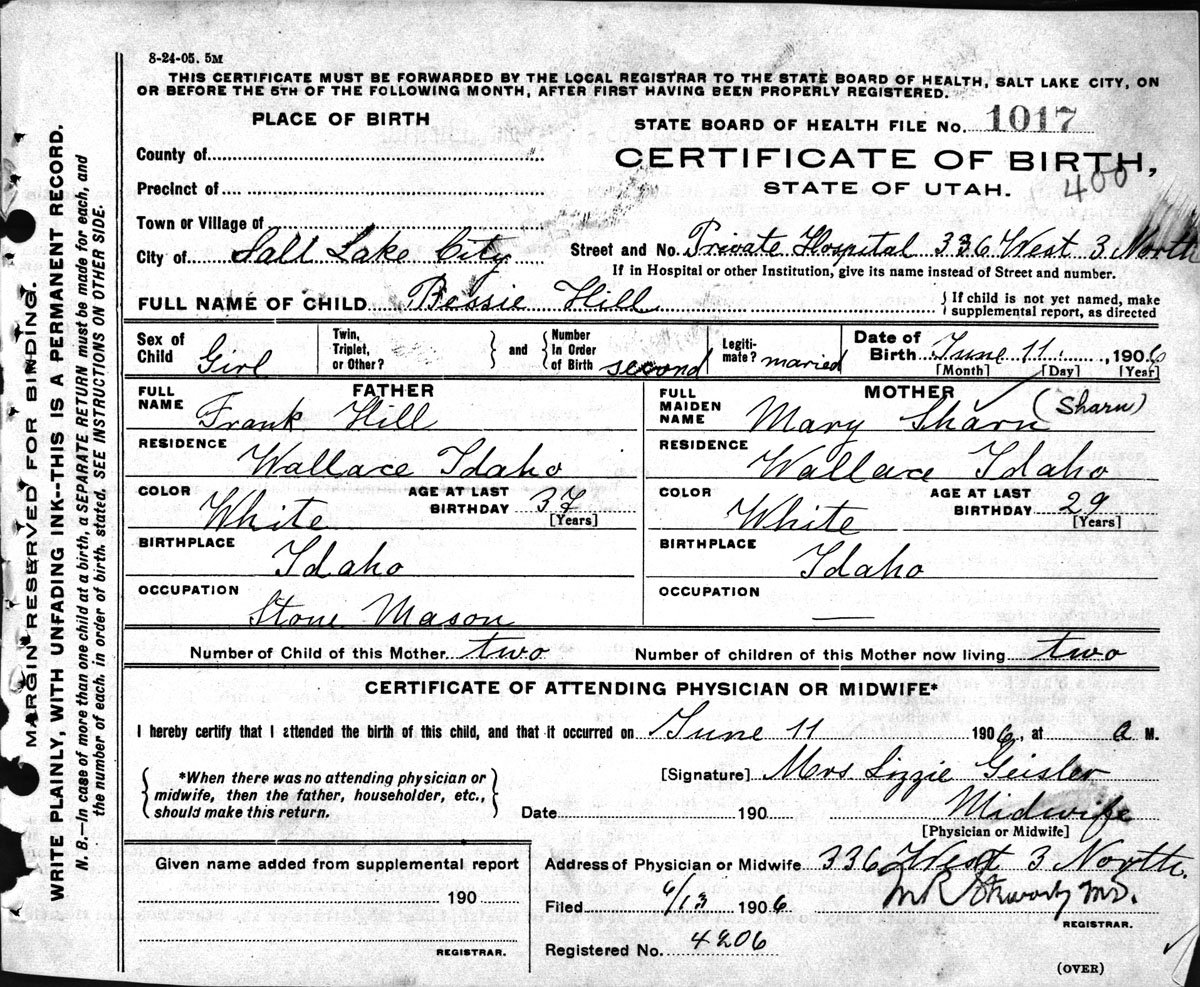 8-24-05. 5M
THIS CERTIFICATE MUST BE FORWARDED BY THE LOCAL REGISTRAR TO THE STATE BOARD OF HEALTH, SALT LAKE CITY, ON
OR BEFORE THE 5TH OF THE FOLLOWING MONTH, AFTER FIRST HAVING BEEN PROPERLY REGISTERED.
PLACE OF BIRTH
STATE BOARD OF HEALTH FILE No. 1017
County of
CERTIFICATE OF BIRTH,
Precinct of
STATE OF UTAH.
400
Town or Village of
City of Salt Lake City Street and No. Private Hospital 336 West 3 North
If in Hospital or other Institution, give its name instead of Street and number.
FULL NAME OF CHILD Bessie Hill { If child is not yet named, make
supplemental report, as directed
Sex of Child Girl Twin, Triplet, or Other? } and { Number In Order of Birth second Legiti-mate? married Date of Birth June 11, 1906
[Month] [Day] [Year]
FATHER
FULL NAME Frank Hill
RESIDENCE
Wallace Idaho
COLOR White AGE AT LAST BIRTHDAY 37
[Years]
BIRTHPLACE
Idaho
OCCUPATION
Stone Mason
MOTHER
FULL MAIDEN NAME Mary Sharn (Sharn)
RESIDENCE
Wallace Idaho
COLOR White AGE AT LAST BIRTHDAY 29
[Years]
BIRTHPLACE
Idaho
OCCUPATION
—
Number of Child of this Mother two Number of children of this Mother now living two
CERTIFICATE OF ATTENDING PHYSICIAN OR MIDWIFE*
I hereby certify that I attended the birth of this child, and that it occurred on June 11 1906, at a M.
{ *When there was no attending physician or
midwife, then the father, householder, etc.,
should make this return. }
[Signature] Mrs Lizzie Geisler
Date 190 Midwife
[Physician or Midwife]
Given name added from supplemental report
190
REGISTRAR.
Address of Physician or Midwife 336 West 3 North.
Filed 6/13 1906 M.D.
REGISTRAR.
Registered No. 4206
(OVER)
MARGIN RESERVED FOR BINDING.
WRITE PLAINLY, WITH UNFADING INK--THIS IS A PERMANENT RECORD.
N. B.—In case of more than one child at a birth, a SEPARATE RETURN must be made for each, and
the number of each, in order of birth, stated. SEE INSTRUCTIONS ON OTHER SIDE.